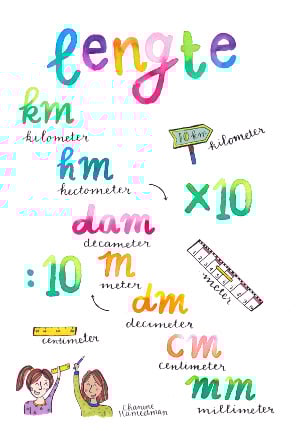 lengte
km
kilometer
10 km
kilometer
hm
hectometer
×10
dam
decameter
:10
m
meter
meter
dm
decimeter
centimeter
cm
centimeter
mm
millimeter